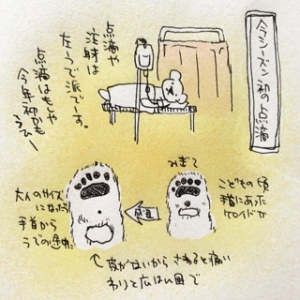 今シーズン初の点滴
点滴や
注射は
左うで派です。
点滴はもしや
今年初かも
みぎて
こどもの頃
手首にあった
ケロイドが
成長
大人のサイズ
になったら
手首から
うでの
↑皮がないから さわると痛い
わりと広はん囲で